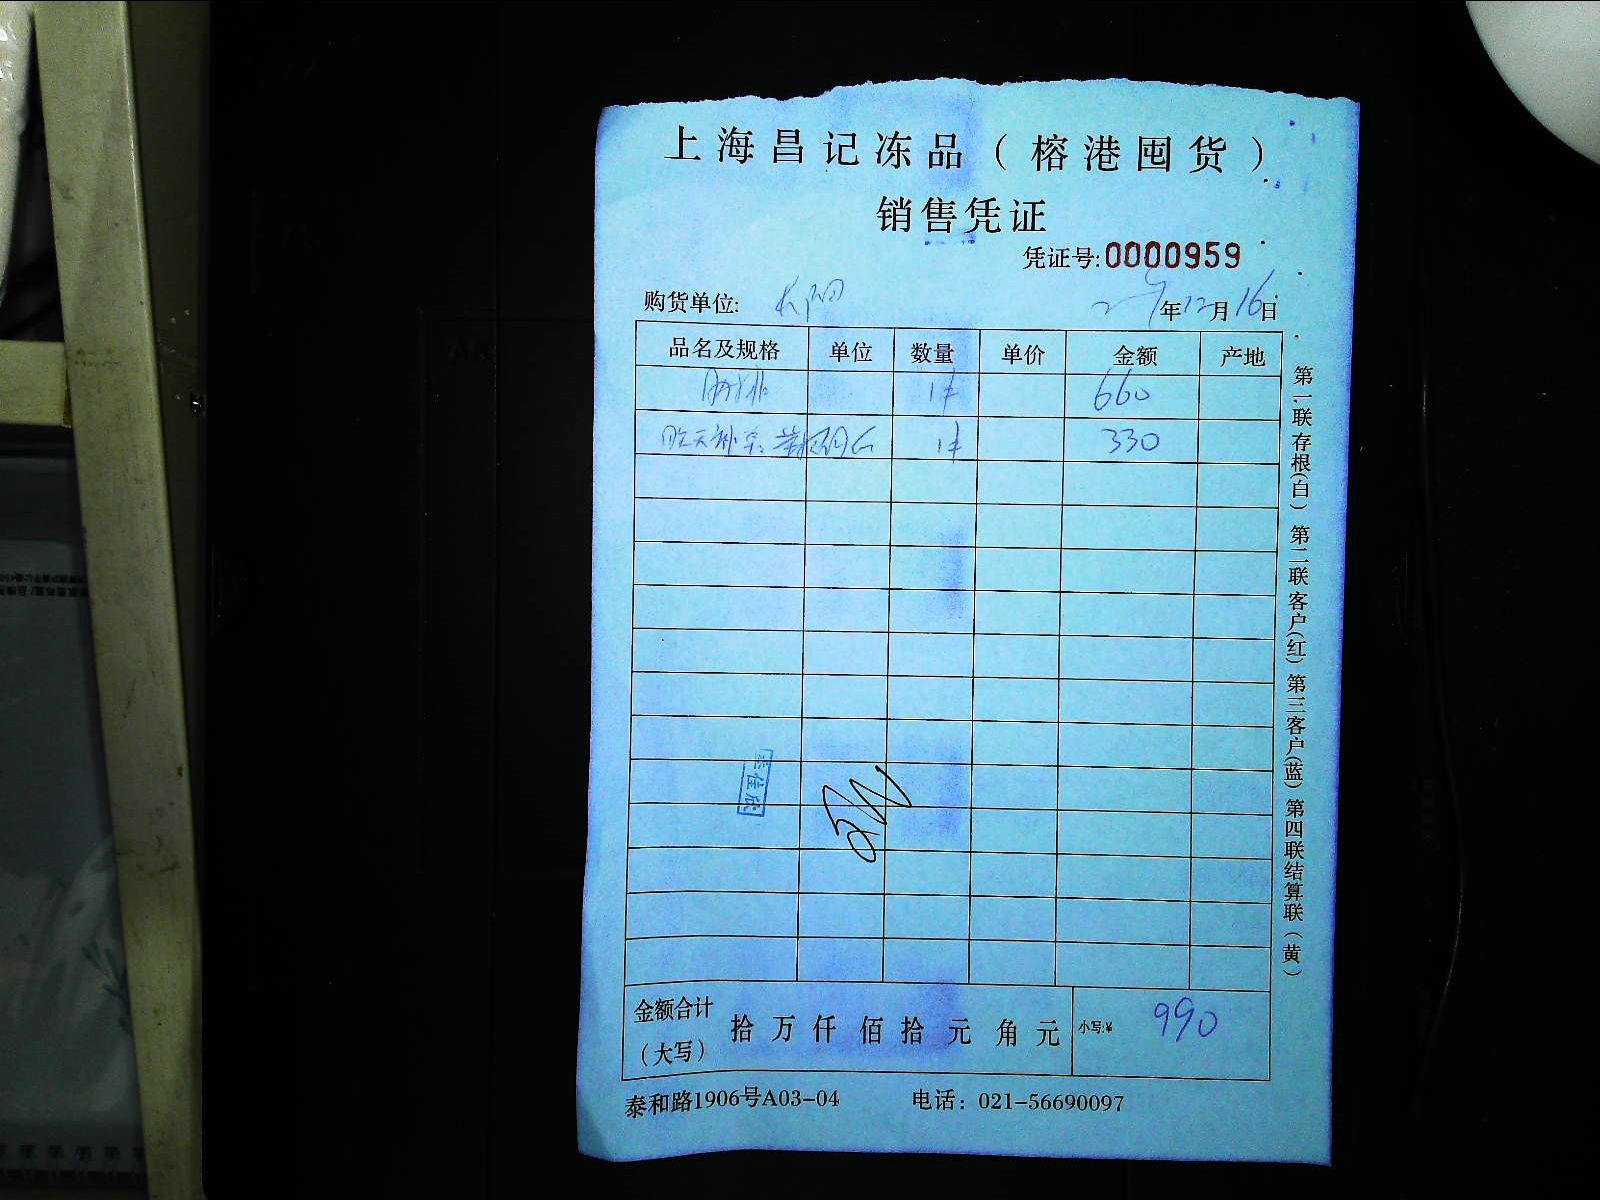 上海昌记冻品（榕港囤货）
销售凭证
凭证号:0000959
购货单位: 长阳 年12月16日
品名及规格 单位 数量 单价 金额 产地
1件 660
昨天补 1件 330
金额合计（大写） 拾 万 仟 佰 拾 元 角 元 小写:¥ 990
泰和路1906号A03-04 电话：021-56690097
第一联存根(白) 第二联客户(红) 第三客户(蓝) 第四联结算联(黄)